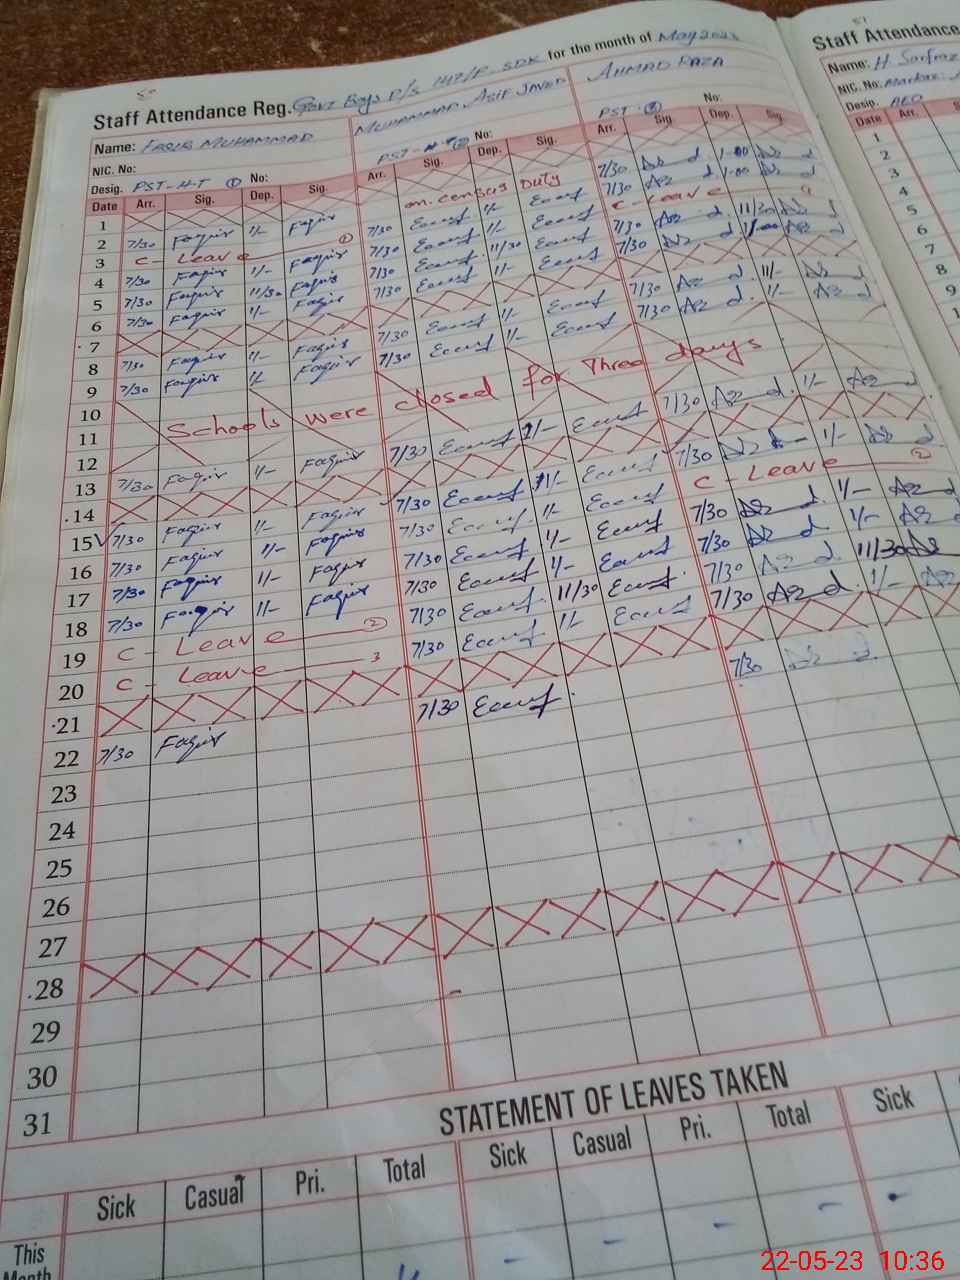 50
Staff Attendance Reg. Govt Boys P/S 142/P. SDK for the month of May 2023
Name: FAQIR MUHAMMAD MUHAMMAD ASIF JAVED AHMAD RAZA
NIC. No:
Desig. PST-H-T ① No: PST- No: PST- No:
Date Arr. Sig. Dep. Sig. Arr. Sig. Dep. Sig. Arr. Sig. Dep. Sig.
1 on census Duty 7/30 1-00
2 7/30 Faqir 1/- Faqir 7/30 1/- 7/30 1-00
3 C - Leave ① 7/30 1/- C - Leave
4 7/30 Faqir 1/- Faqir 7/30 1/- 7/30 11/30
5 7/30 Faqir 11/30 Faqir 7/30 11/30 7/30
6 7/30 Faqir 1/- Faqir 7/30 1/-
7
8 7/30 Faqir 1/- Faqir 7/30 1/- 7/30
9 7/30 Faqir 1/- Faqir 7/30 1/- 7/30 1/-
10
11 Schools were closed for Three days
12
13 7/30 Faqir 1/- Faqir 7/30 1/- 7/30 1/-
14
15 7/30 Faqir 1/- Faqir 7/30 1/- 7/30 1/-
16 7/30 Faqir 1/- Faqir 7/30 1/- C - Leave ②
17 7/30 Faqir 1/- Faqir 7/30 1/- 7/30 1/-
18 7/30 Faqir 1/- Faqir 7/30 1/- 7/30 1/-
19 C - Leave ② 7/30 11/30 7/30 11/30
20 C - Leave 3 7/30 1/- 7/30 1/-
21
22 7/30 Faqir 7/30 7/30
23
24
25
26
27
28
29
30
31
STATEMENT OF LEAVES TAKEN
Sick Casual Pri. Total Sick Casual Pri. Total Sick
This
Month
51
Staff Attendance
Name: H. Sarfraz
NIC. No: Markaz:
Desig. AEO
Date Arr.
1
2
3
4
5
6
7
8
9
22-05-23 10:36